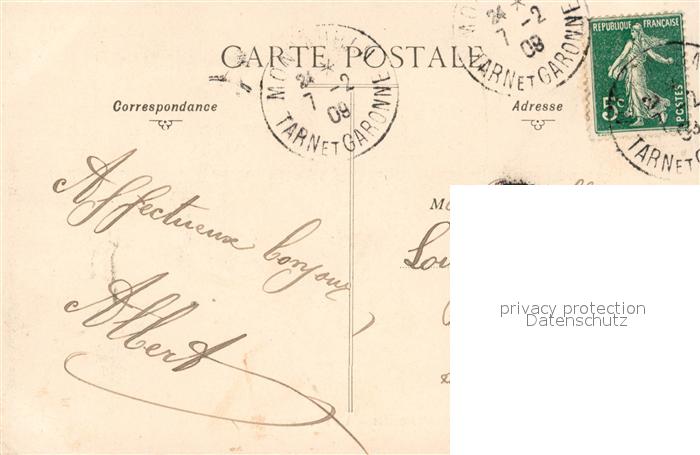 CARTE POSTALE
Correspondance
Adresse
RÉPUBLIQUE FRANÇAISE
5c
POSTES
24 -2
7 09
TARN ET GARONNE
24 -2
7 09
TARN ET GARONNE
TARN ET G
Affectueux bonjour
Albert
M
Lou
privacy protection
Datenschutz